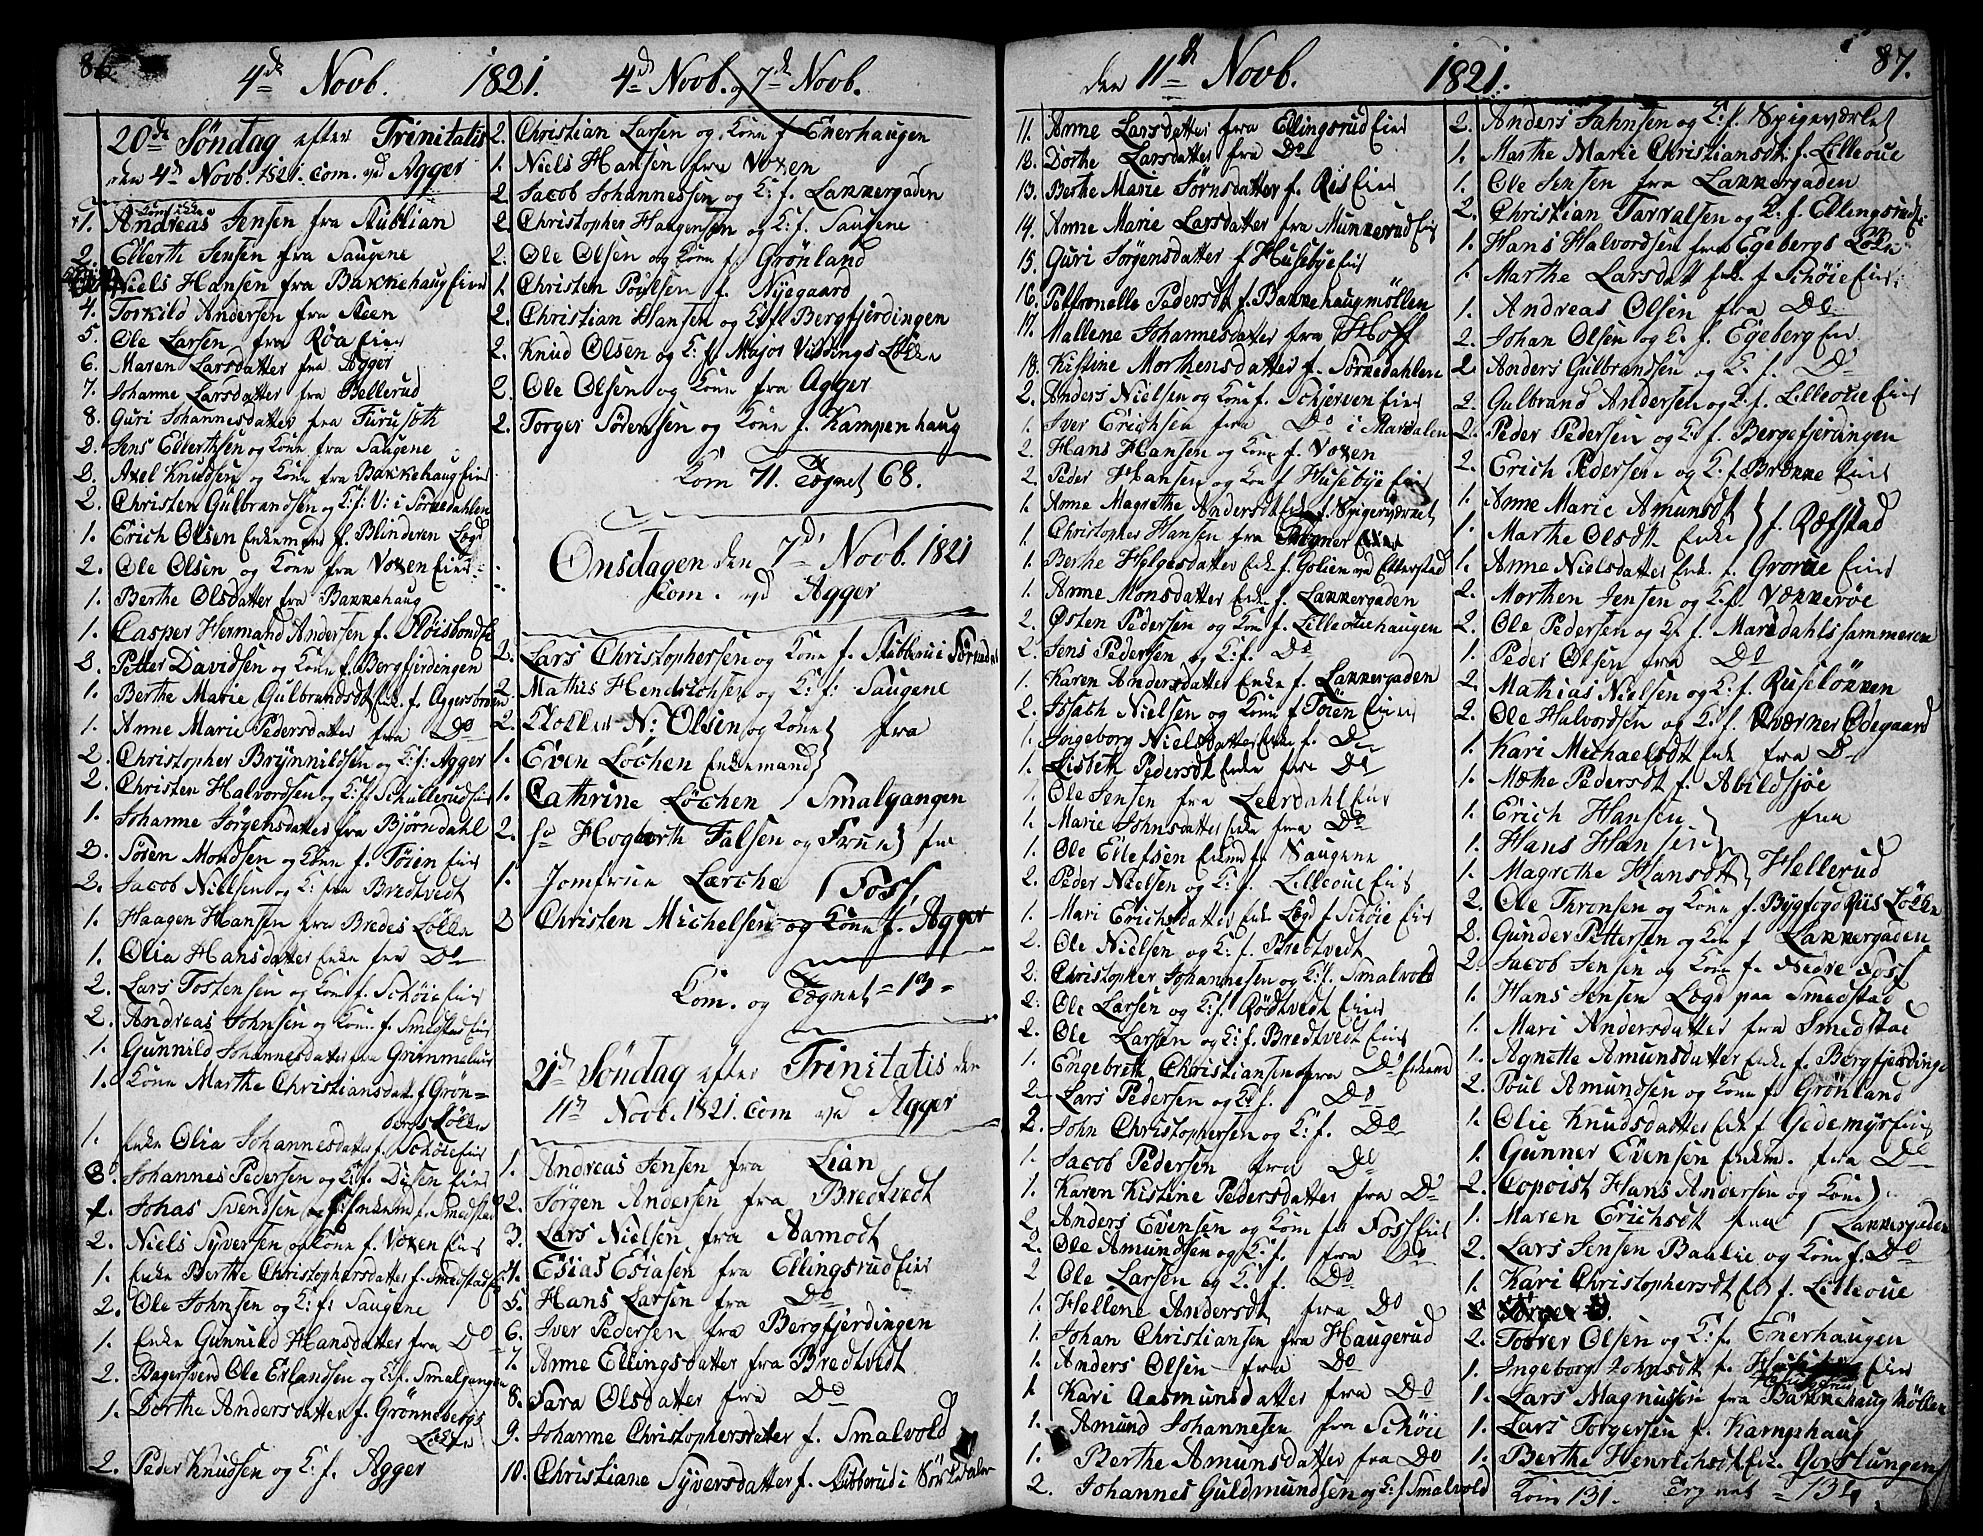 86.
4de Novb. 1821. 4de Novb. og 7de Novb.
20de Søndag efter Trinitatis
den 4de Novb. 1821. com. ved Agger
1. Andreas Jensen fra Stubljan
2. Ellert Jensen fra Saugene
Niels Hansen fra Bakkehaug Eier
4. Torkild Andersen fra Steen
5. Ole Larsen fra Røa Eier
6. Maren Larsdatter fra Agger
7. Johanne Larsdatter fra Hellerud
8. Guri Johannesdatter fra Furuseth
2. Jens Ellertsen og Kone fra Saugene
2. Axel Knudsen og Kone fra Bakkehaug Eier
2. Christen Gulbrandsen og K: f: V: i Sørkedahlen
1. Erich Olsen Enkemand f. Blinderen Lægd
2. Ole Olsen og Kone fra Voxen Eier
1. Berthe Olsdatter fra Bakkehaug
1. Casper Hermand Andersen f. Fløisbond
2. Petter Davidsen og Kone f. Bergfjerdingen
1. Berthe Marie Gulbrandsdt Enke f. Aggersbroen
1. Anne Marie Pedersdatter fra Do
2. Christopher Brynnildsen og K: f: Agger
2. Christen Halvordsen og K: f. Skullerud Eier
1. Johanne Jørgensdatter fra Bjørndahl
2. Søren Mondsen og Kone f. Tøien Eier
2. Jacob Nielsen og K: fra Bredtvedt
1. Haagen Hansen fra Bredes Løkke
1. Olia Hansdatter Enke fra Do
2. Lars Tostensen og Kone f. Schøie Eier
2. Andreas Johnsen og Kone f. Smedstad Eier
1. Gunnild Johannesdatter fra Grimmelund
1. Kone Marthe Christiansdat f. Grøn=
bergs Løkke
1. Enke Olia Johannesdatter f. Schøie Eier
Johannes Pedersen og K: f. Disen Eier
Johas Svendsen Enkem f. Smedstad
2. Niels Syversen og Kone f. Voxen Eier
1. Enke Berthe Christophersdatter f. Smedstad E
2. Ole Johnsen og K: f: Saugene
1. Enke Gunnild Hansdatter fra Do
2. Bagersvend Ole Erlandsen og K: f. Smalgangen
1. Dorthe Andersdatter f. Grønnebergs
Løkke
2. Peder Knudsen og K: f. Agger
2. Christian Larsen og Kone f. Enerhaugen
1. Niels Hansen fra Voxen
2. Jacob Johannessen og K: f. Lakkergaden
2. Christopher Haagensen og K: f. Saugene
2. Ole Olsen og Kone f. Grønland
1. Christen Povelsen f. Nyegaard
2. Christian Hansen og K: f. Bergfjerdingen
2. Knud Olsen og K: f. Major Vibbings Løkke
2. Ole Olsen og Kone fra Agger
2. Torger Sørensen og Kone f. Kampenhaug
Kom 71. Tegnet 68.
Onsdagen den 7de Novb. 1821
Kom. ved Agger
2. Lars Christophersen og Kone f. Stubberud i Sørkedal
2. Mathis Hendrichsen og K: f: Saugene
2. Klokker N: Olsen og Kone fra
1. Even Løchen Enkemand
1. Cathrine Løchen Smalgangen
2. Hr Hogborth Falsen og Frue fra
1. Jomfrue Lerche Foss
2 Christen Michelsen og Kone f. Agger
Kom. og Tegnet = 13 =
21de Søndag efter Trinitatis den
11te Novb. 1821. com ved Agger
1. Andreas Jensen fra Lian
2. Jørgen Andersen fra Bredtvedt
3. Lars Nielsen fra Aamodt
4. Esias Esiasen fra Ellingsrud Eier
5. Hans Larsen fra Do
6. Iver Pedersen fra Bergfjerdingen
7. Anne Ellingsdatter fra Bredtvedt
8. Sara Olsdatter fra Do
9. Johanne Christophersdatter f. Smalvold
10. Christiane Syversdatter f. Stubberud i Sørkedalen
den 11te Novb. 1821. 87.
11. Anne Larsdatter fra Ellingsrud Eier
12. Dorthe Larsdatter fra Do
13. Berthe Marie Jørnsdatter f. Ris Eier
14. Anne Marie Larsdatter fra Munkerud Eier
15. Guri Jørgensdatter f Husebye Eier
16. Petronelle Pedersdt f. Bakkehaugmøllen
17. Mallene Johannesdatter fra Hoff
18. Kistine Morthensdatter f. Sørkedahlen
2. Anders Nielsen og Kone f. Torjerven Eier
1. Iver Erichsen fra Do i Maridalen
2. Hans Hansen og Kone f. Voxen
2. Peder Hansen og Kon f Husebye Eier
1. Anne Magrethe Andersdt Enke f. Spigerværket
1. Christopher Hansen fra Frogner Eier
1. Berthe Helgesdatter Enk. f. Golien ved Ellerstad
1. Anne Monsdatter Enke f. Lakkergaden
2. Østen Pedersen og Kone f. Lilleouehaugen
2. Jens Pedersen og K: f. Do
1. Karen Andersdatter Enke f. Lakkergaden
2. Josath Nielsen og Kone f Tøien Eier
1. Ingeborg Nielsdatter Enke f. Do
1. Lisbeth Pedersdt Enke fra Do
1. Ole Jensen fra Leerdahl Eier
1. Marie Johnsdatter Enke fra Do
1. Ole Ellefsen Enkm f. Saugene
2. Peder Nielsen og K: f. Lilleoue Eier
1. Mari Erichsdatter Enke Lægd f. Schøie Eier
2. Ole Nielsen og K: f. Bredtvedt
2. Christopher Johannesen og K: f. Smalvold
2. Ole Larsen og K: f. Rødtvedt Eier
2. Ole Larsen og K: f. Bredtvedt Eier
1. Engebreth Christiansen fra Do Enkem
2. Lars Pedersen og K: f. Do
2. John Christophersen og K: f. Do
1. Jacob Pedersen fra Do
1. Karen Kistine Pedersdatter fra Do
2. Anders Evensen og Kone fra Foss Eier
2. Ole Amundsen og K: f. fra Do
2 Ole Larsen og K: f. Do
1. Hellene Andersdt fra Do
1. Johan Christiansen fra Haugerud
1. Anders Olsen fra Do
1. Kari Aasmunsdatter fra Do
1. Amund Johannesen fra Schøie
1. Berthe Amunsdatter fra Do
2. Johannes Guldmundsen og K: f. Smalvold
2. Anders Jahnsen og K: f. Spigerværket
1. Marthe Marie Christiansdt f. Lilleoue
1. Ole Jensen fra Lakkergaden
2. Christian Tarralsen og K: f. Ellingsrud Ei
1. Hans Halvordsen fra Egebergs Løkke
1. Marthe Larsdatt Enk. f Schøie Eier
1. Andreas Olsen fra Do
2. Johan Olsen og K: f. Egeberg Eier
2. Anders Gulbrandsen og K: f. Do
2. Gulbrand Andersen og K: f. Lilleoue Eier
2. Peder Pedersen og K: f. Bergefjerdingen
2. Erich Pedersen og K: f. Brække Eier
1. Anne Marie Amunsdt
1. Marthe Olsdt Enke f. Refstad
1. Anne Nielsdatter Enk. f. Grorue Eier
2. Morthen Jensen og K: f. Vækkerøe
2. Ole Pedersen og K: f. Maridahlshammeren
1. Peder Olsen fra Do
2. Mathias Nielsen og K: f. Ruseløkken
2. Ole Halvordsen og K: f. Kværner Ødegaard
1. Kari Michaelsdt Enk fra Do
1. Mæthe Pedersdt f. Abildsøe
1. Erich Hansen fra
1. Hans Hansen
1. Magrethe Hansdt Hellerud
2. Ole Thronsen og Kone f. Bygfogd Riis Løkke
2. Gunder Pettersen og Kon f Lakkergaden
2. Jacob Jensen og Kone f. Nedre Foss
1. Hans Jensen Lægd paa Smedstad
1. Mari Andersdatter fra Smedstad
1. Agnette Amunsdatter Enke f. Bergfjerdinge
2. Poul Amundsen og Kone f. Grønland
1. Olie Knudsdatter Enk f Gedemyr Eier
1. Gunner Evensen Enkm. fra Do
2. Copoist Hans Andersen og Kone
1. Maren Erichsdt fra Lakkergaden
2. Lars Jensen Baalie og Kone f. Do
1. Kari Christophersdt Enk f. Lilleoue
2. Tosten Olsen og K: f. Enerhaugen
1. Ingeborg Johnsdt f. Eier
1. Lars Magnusen fra Bakkehaug Møllen
1. Lars Torgersen f. Kamphaug
1. Berthe Henrichsdt Enk.
Kom 131. Tegnet = 134